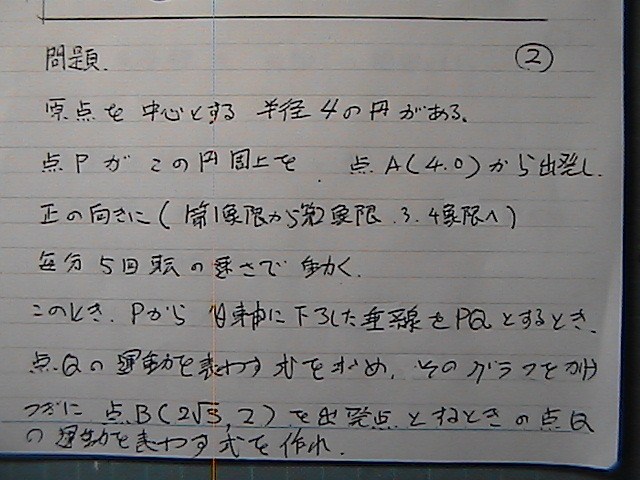 問題. ②
原点を中心とする 半径4の円がある。
点Pが この円周上を 点A(4.0)から出発し.
正の向きに(第1象限から第2象限.3.4象限へ)
毎分5回転の速さで動く.
このとき.Pから y軸に下ろした垂線をPQとするとき.
点Qの運動を表わす式を求め.そのグラフをかけ
つぎに 点B(2√3,2)を出発点とするときの点Q
の運動を表わす式を作れ.